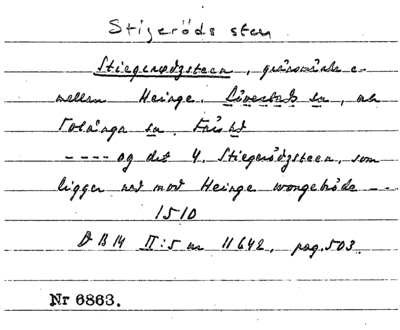 Stigeröds sten
Stiegerødzsteen, gränsmärke e-
mellan Heinge, sn, och
Tolånga sn. Färs hd
---- og det 4. Stiegerödzsteen, som
ligger ned mod Heinge wongebröde --
1510
DB14 II:5 nr 11642, pag. 503.
Nr 6863.